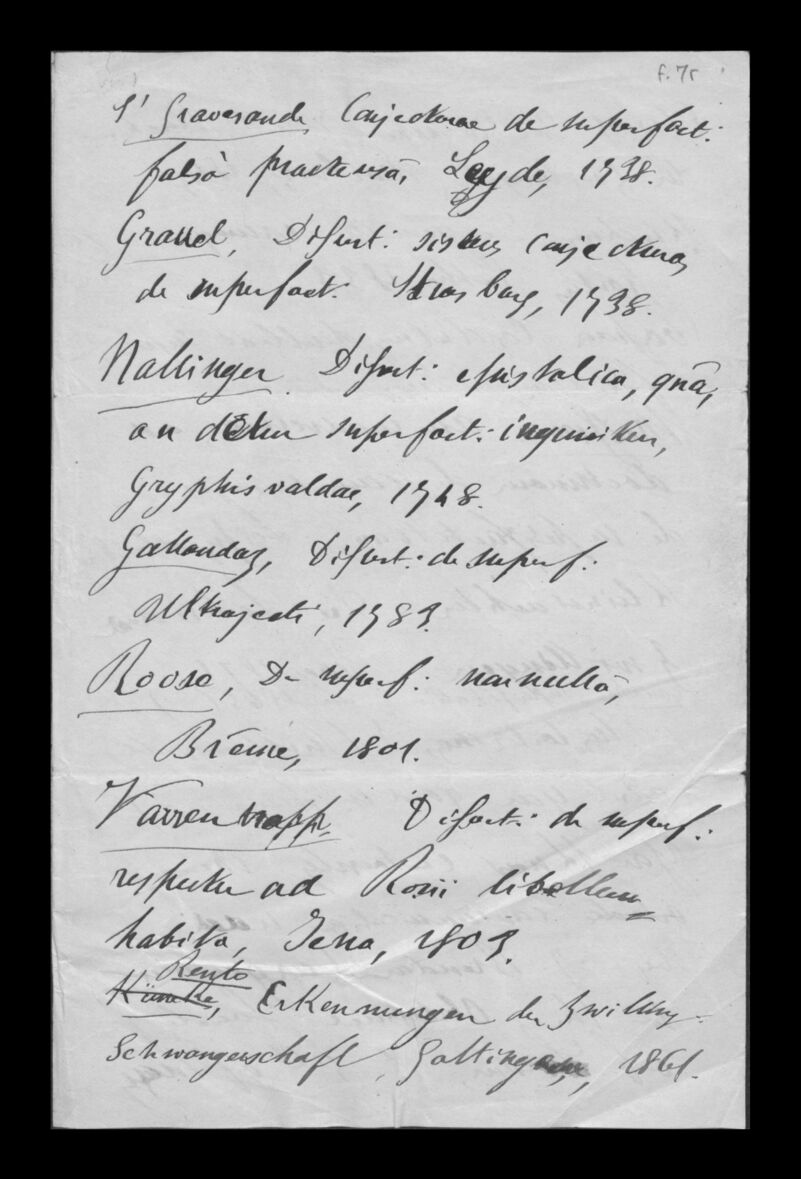 f. 7r
S' Gravesande, Conjecturae de superfoet:
falsò praetensâ, Leyde, 1738.
Gravel, Dissert: sistens conjecturas
de superfoet. Strasburg, 1738.
Nallinger Dissert: epistolica, quâ,
an detur superfoet: inquiritur,
Gryphis valdae, 1748.
Gallandaz, Dissert: de superf:
Ultrajecti, 1783.
Roose, De superf: nonnullâ,
Brême, 1801.
Varrentrapp, Dissert: de superf:
respectu ad Rosii libellum
habito, Jena, 1803.
Künecke,
Erkennungen der Zwillings-
Schwangerschaft, Gottingen, 1861.